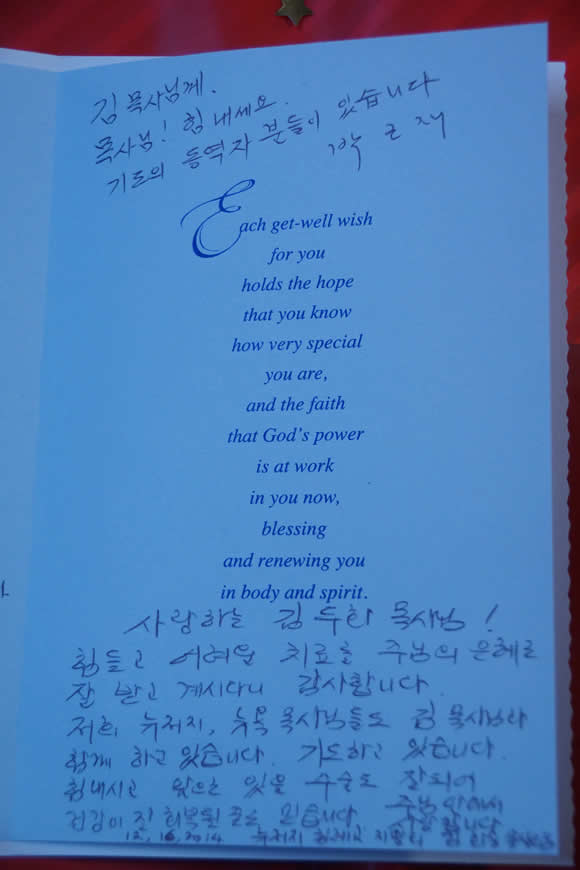 김 목사님께.
목사님! 힘 내세요.
기도의 동역자 분들이 있습니다
박 근 재
Each get-well wish
for you
holds the hope
that you know
how very special
you are,
and the faith
that God's power
is at work
in you now,
blessing
and renewing you
in body and spirit.
사랑하는 김 두한 목사님!
힘들고 어려운 치료를 주님의 은혜로
잘 받고 계시다니 감사합니다.
저희 뉴저지, 뉴욕 목사님들도 김 목사님과
함께 하고 있습니다. 기도하고 있습니다.
힘내시고 앞으로 있을 수술도 잘되어
건강이 잘 회복될 줄로 믿습니다. 주님 안에서
사랑합니다
12, 16, 2014 뉴저지